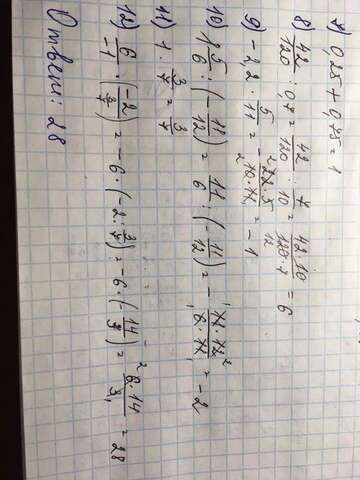 7) 0,25 + 0,75 = 1
8) 42/120 : 0,7 = 42/120 : 7/10 = 42·10/120·7 = 6
9) -2,2 · 5/11 = - 22·5/10·11 = -1
10) 1 5/6 : (-11/12) = 11/6 : (-11/12) = - 11·12/6·11 = -2
11) 1 · 3/7 = 3/7
= -6 · (-14/3) = 6·14/3 = 28
Ответ: 28